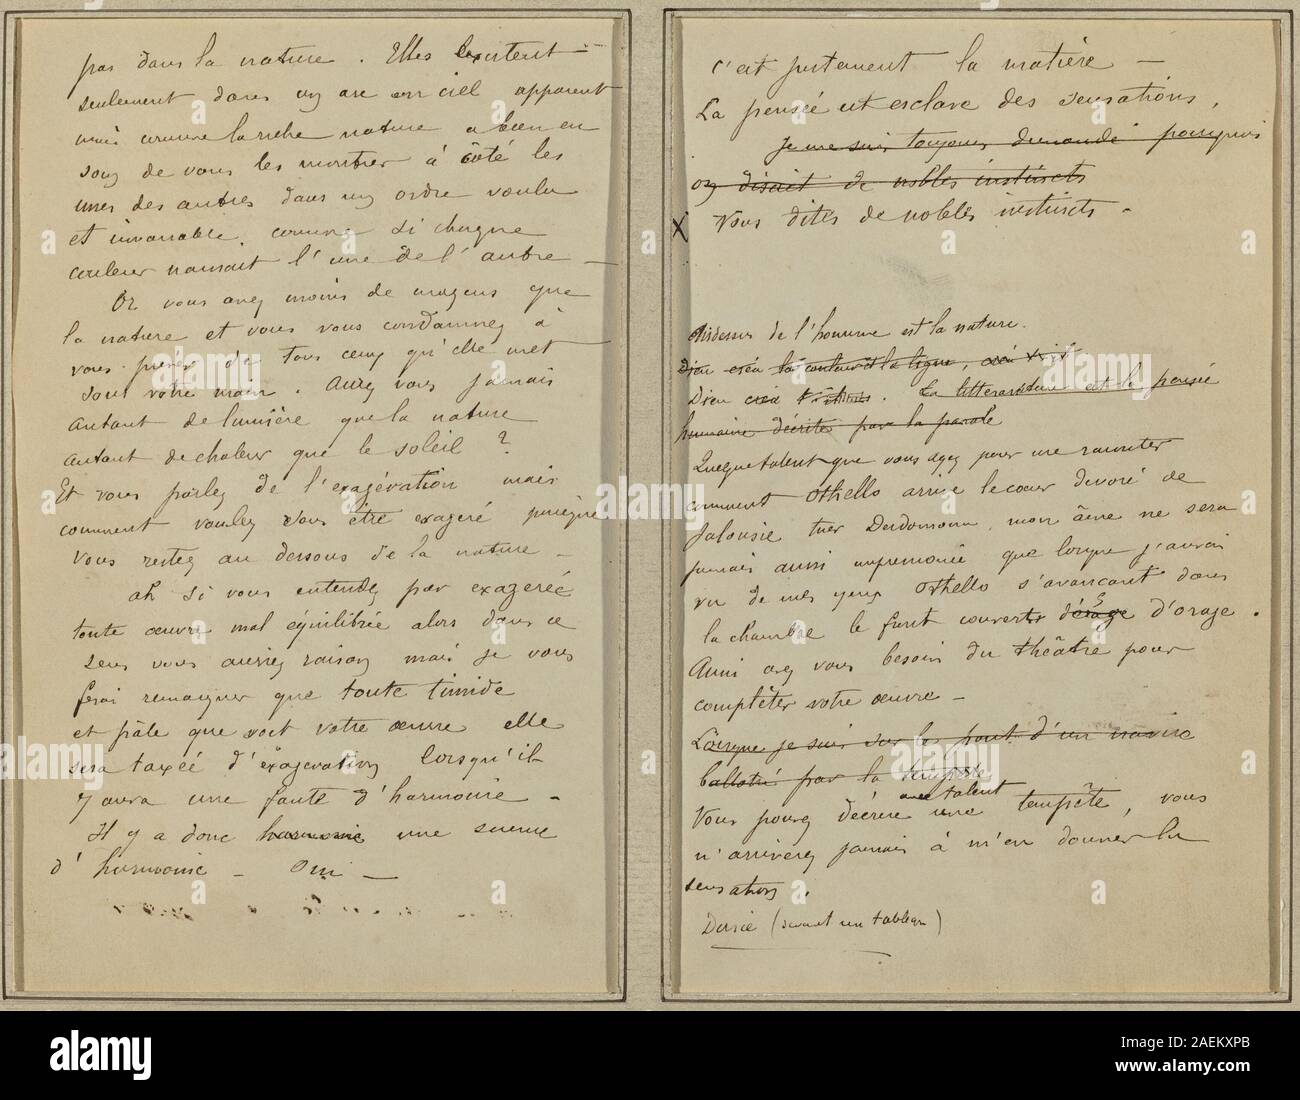 pas dans la nature. Elles existent
seulement dans un arc en ciel apparent
mais comme la riche nature a bien eu
soin de vous les montrer à côté les
unes des autres dans un ordre voulu
et invariable, comme si chaque
couleur naissait l'une de l'autre —
Or vous avez moins de moyens que
la nature et vous vous condamnez à
vous priver de tous ceux qu'elle met
sous votre main. Aurez vous jamais
autant de lumière que la nature
autant de chaleur que le soleil ?
Et vous parlez de l'exagération mais
comment voulez vous être exagéré puisque
vous restez au dessous de la nature —
ah si vous entendez par exagérée
toute œuvre mal équilibrée alors dans ce
sens vous auriez raison mais je vous
ferai remarquer que toute timide
et pâle que soit votre œuvre elle
sera taxée d'exagération lorsqu'il
y aura une faute d'harmonie —
Il y a donc harmonie une science
d'harmonie — Oui —
c'est justement la matière —
La pensée est esclave des sensations,
Je me suis toujours demandé pourquoi
on disait de nobles instincts
X Vous dites de nobles instincts —
Audessus de l'homme est la nature.
Dieu créa la couleur et la ligne, créa
Dieu créa. La littérature est la pensée
humaine décrite par la parole
Quelque talent que vous ayez pour me raconter
comment Othello arrive le cœur dévoré de
jalousie tuer Desdemona, mon âme ne sera
jamais aussi impressionée que lorsque j'aurai
vu de mes yeux Othello s'avancant dans
la chambre le front couvert d'orage d'orage.
Aussi avez vous besoin du théâtre pour
complêter votre œuvre —
Lorsque je suis sur le pont d'un navire
ballotté par la tempête
avec talent
Vous pouvez décrire une tempête, vous
n'arriverez jamais à m'en donner la
sensation.
(devant un tableau)
alamy
Image ID: 2AEKXPB
www.alamy.com